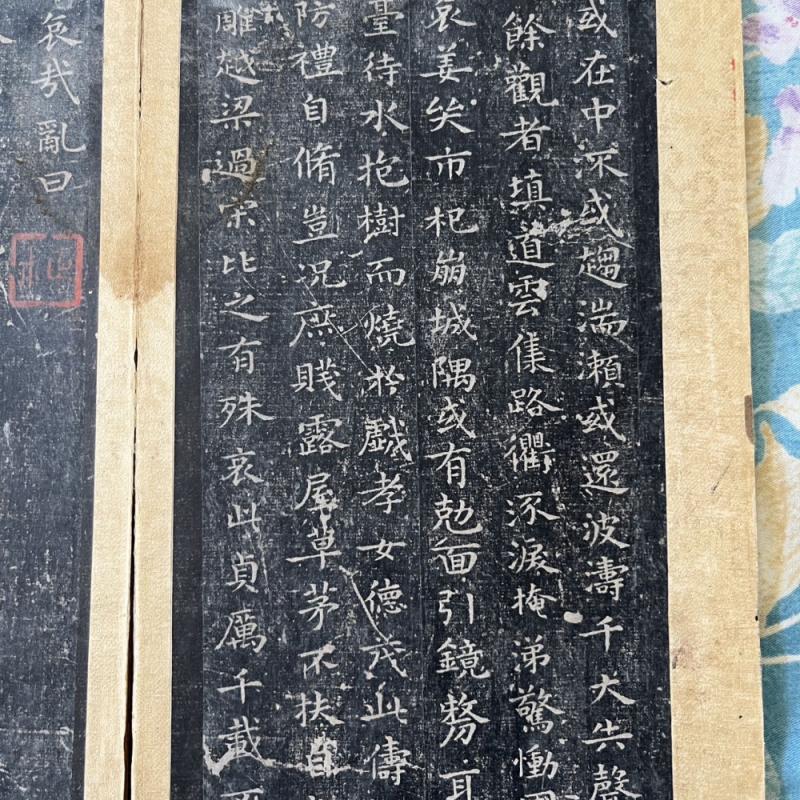 或在中流或趨湍瀨或還波濤千夫失聲
餘觀者填道雲集路衢流淚掩涕驚慟國
哀姜哭市杞崩城隅或有剋面引鏡剺耳
臺待水抱樹而燒於戲孝女德茂此儔
防禮自脩豈況庶賤露屋草茅不扶自
雕越梁過宋比之有殊哀此貞厲千載不
哀哉亂曰